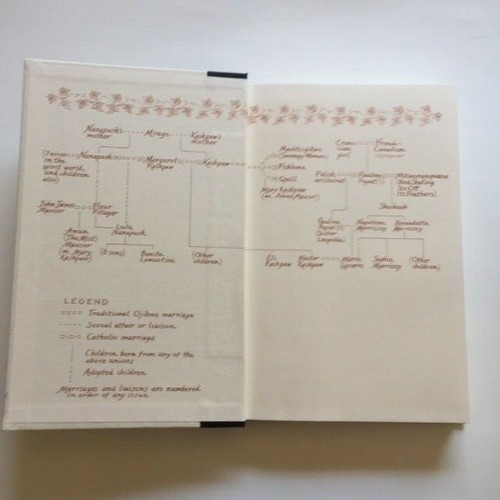 Nanapush's
mother
Mirage
Kashpaw's
mother
Nanapush
Margaret
Kashpaw
Kashpaw
John James
Mauser
Fleur
Pillager
Lulu
Nanapush
Awun
(The Mist)
Mauser
(m. Mary
Kashpaw)
(8 sons)
Bonita
Lamartine
(Other
children)
LEGEND
Traditional Ojibwe marriage
Sexual affair or liaison
Catholic marriage
Children born from any of the
above unions
Adopted children
Marriages and liaisons are numbered
in order of any issue.
Fishbone
Quill
Mary Kashpaw
(m. Awun Mauser)
Eli
Kashpaw
Nector
Kashpaw
girl
French-
Canadian
voyageur
Polish
aristocrat
Pauline
Puyat
Shesheeb
Pauline
Puyat
Sister
Leopolda
Napoleon
Morrissey
Bernadette
Morrissey
Marie
Lazarre
Sophie
Morrissey
(Other
children)